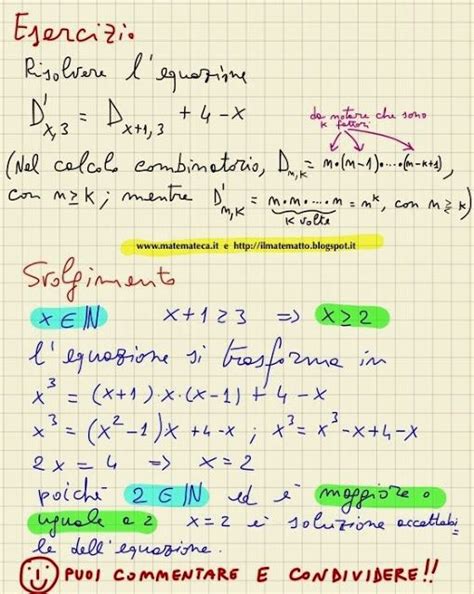 Esercizio
Risolvere l'equazione
D'x,3 = Dx+1,3 + 4-x
da notare che sono
k fattori
(Nel calcolo combinatorio, Dm,k = m·(m-1)·...·(m-k+1),
con m≥k; mentre D'm,k = m·m·...·m = m^k, con m ≥ k)
k volte
www.matemateca.it e http://ilmatematto.blogspot.it
Svolgimento
x ∈ ℕ x+1≥3 => x≥2
l'equazione si trasforma in
x³ = (x+1)·x·(x-1) + 4-x
x³ = (x²-1)x +4-x ; x³= x³-x+4-x
2x = 4 => x = 2
poiché 2 ∈ ℕ ed è maggiore o
uguale a 2 x=2 è soluzione accettabi
le dell'equazione.
PUOI COMMENTARE E CONDIVIDERE!!